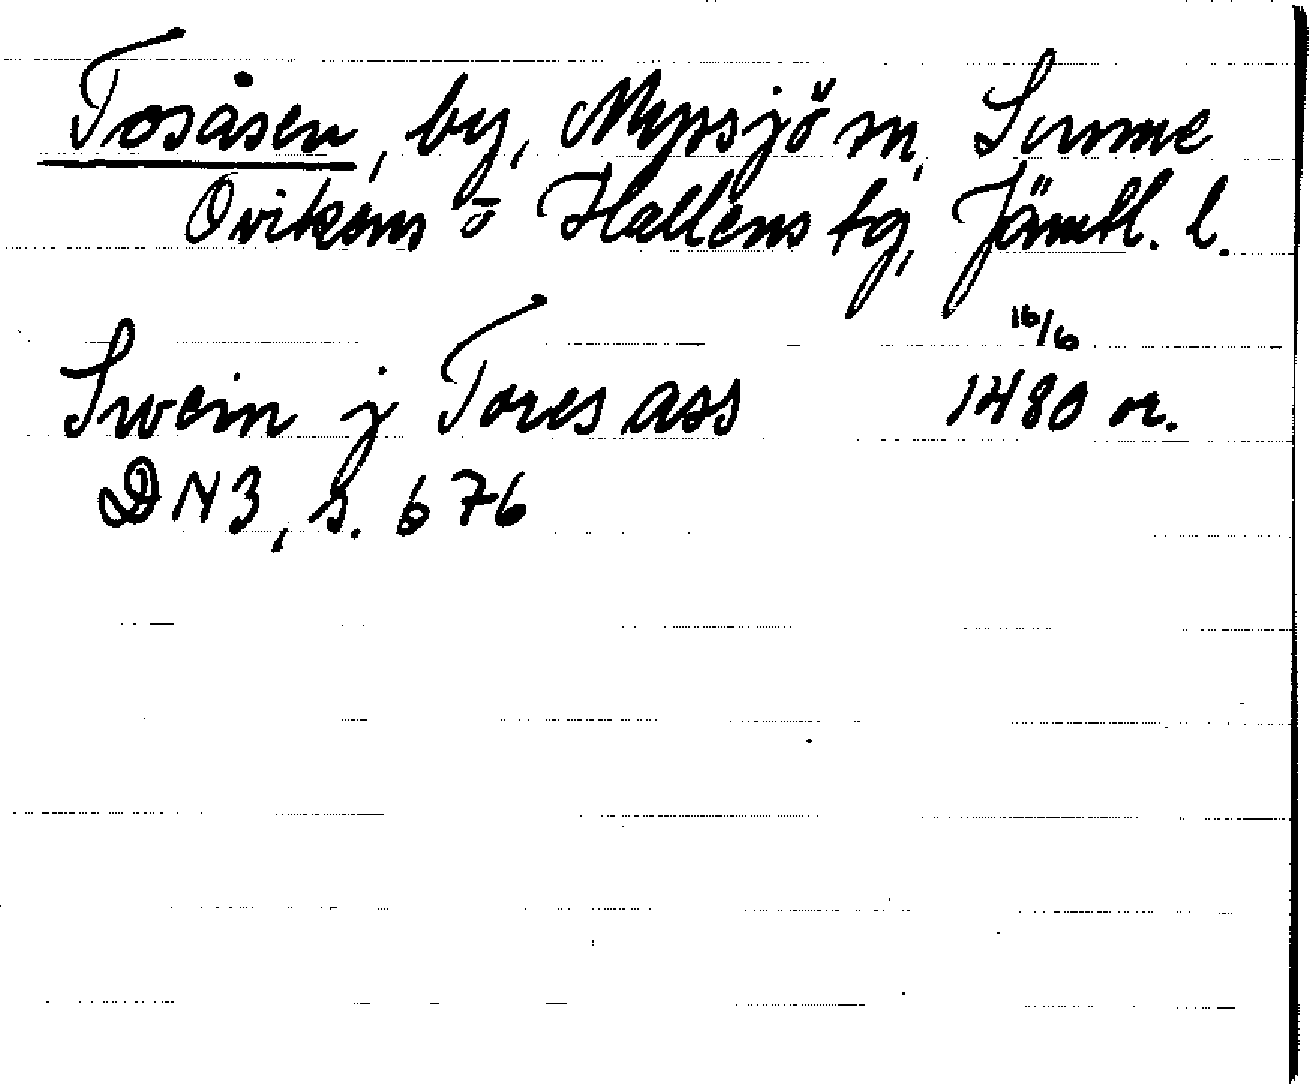 Tosåsen, by, Myssjö sn, Sunne
Ovikens o Hallens tg, Jämtl. l.
Swein j Tores ass 16/6 1480 or.
DN 3, s. 676